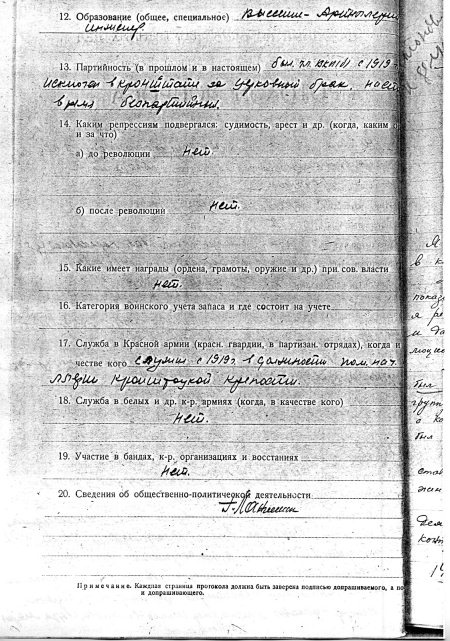 12. Образование (общее, специальное) Высшее - Артиллерий
инженер
13. Партийность (в прошлом и в настоящем) был чл. ВКП(б) с 1919 г.
исключен в Кронштадте за церковный брак, наст
время беспартийный.
14. Каким репрессиям подвергался: судимость, арест и др. (когда, каким о
и за что)
а) до революции нет
б) после революции нет.
15. Какие имеет награды (ордена, грамоты, оружие и др.) при сов. власти
нет.
16. Категория воинского учета запаса и где состоит на учете
17. Служба в Красной армии (красн. гвардии, в партизан. отрядах), когда и
честве кого служил с 1919 г. в должности пом. нач.
Кронштадтской крепости.
18. Служба в белых и др. к.-р. армиях (когда, в качестве кого)
нет.
19. Участие в бандах, к.-р. организациях и восстаниях
нет.
20. Сведения об общественно-политической деятельности
Примечание. Каждая страница протокола должна быть заверена подписью допрашиваемого, а по
и допрашивающего.
Я
в к
показ
я ре
и да
был
групп
о ко
был
стан
Дем